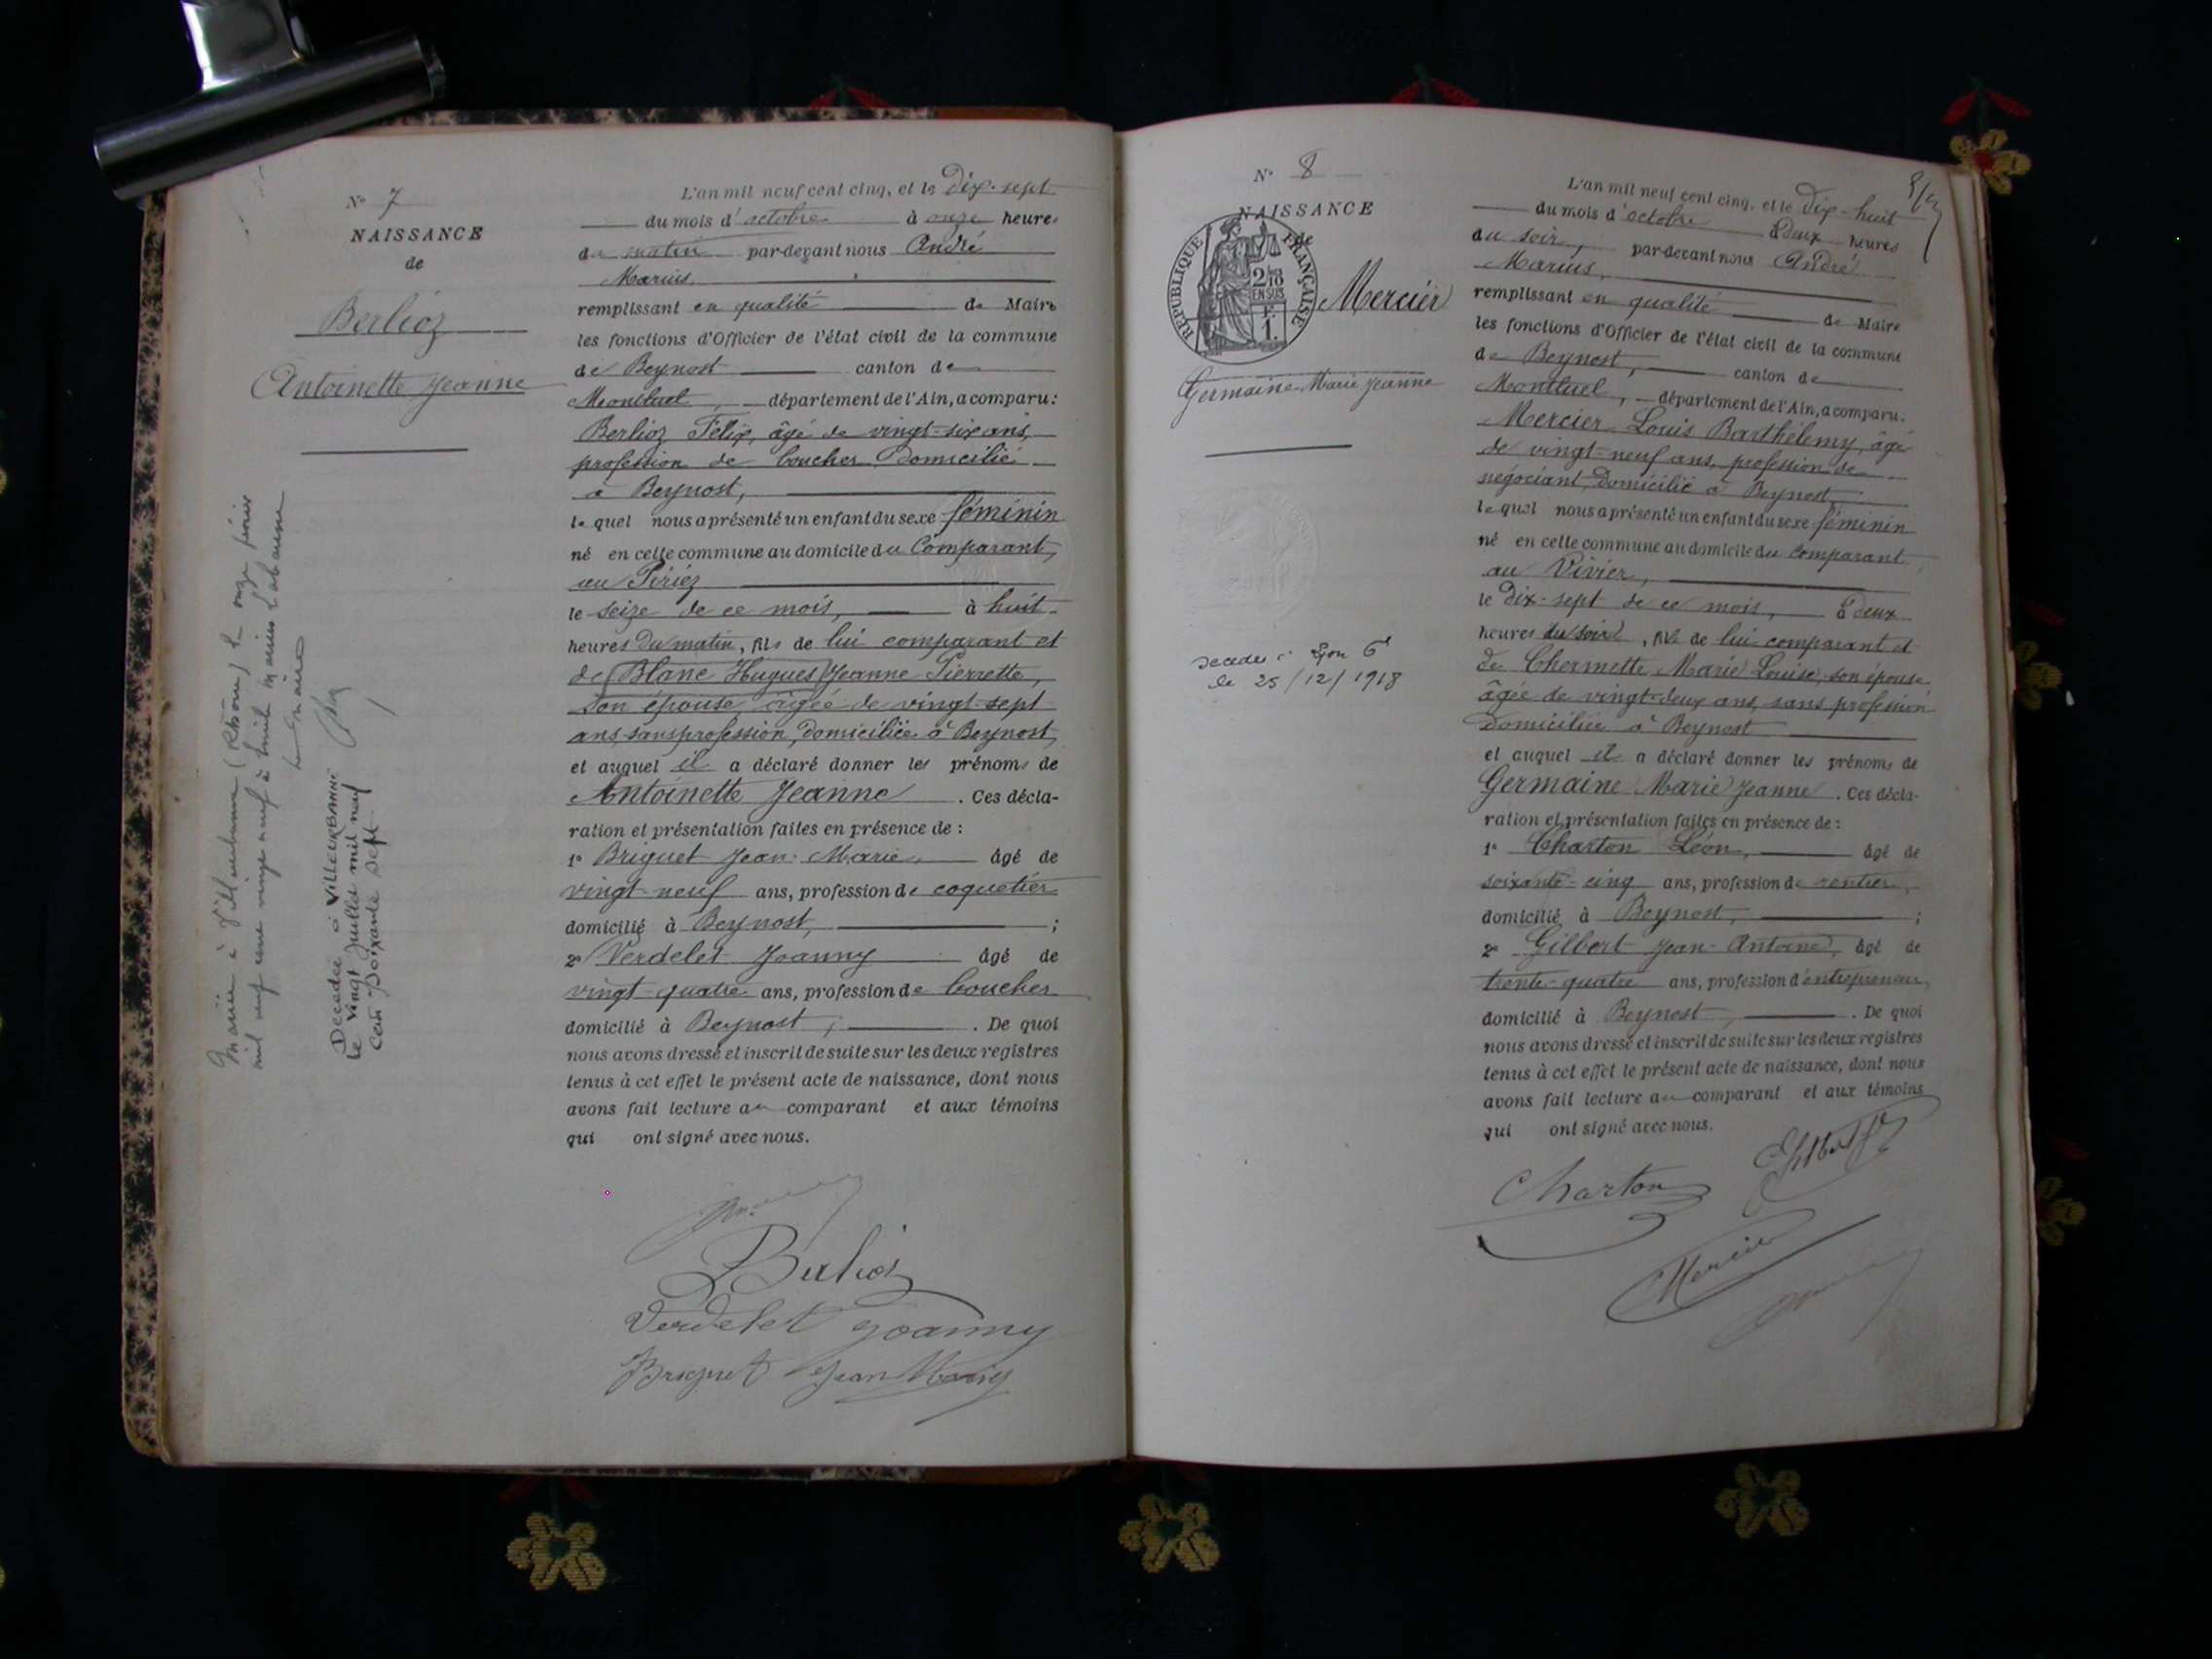 N° 7
NAISSANCE
de
Berlioz
Antoinette Jeanne
Mariée à Villeurbanne (Rhône) le onze février
mil neuf cent vingt neuf à Emile
Le Maire
Décédée à VILLEURBANNE
le vingt juillet mil neuf
cent soixante sept
L'an mil neuf cent cinq, et le Dix-sept
du mois d'octobre à onze heures
du matin par-devant nous André
Marius,
remplissant en qualité de Maire
les fonctions d'Officier de l'état civil de la commune
de Beynost canton de
Montluel, département de l'Ain, a comparu:
Berlioz Félix, âgé de vingt-six ans,
profession de boucher domicilié
à Beynost,
lequel nous a présenté un enfant du sexe féminin
né en cette commune au domicile du Comparant,
au Périez
le seize de ce mois, à huit
heures du matin, fils de lui comparant et
de Blanc Hugues Jeanne Pierrette,
son épouse, âgée de vingt-sept
ans, sans profession, domiciliée à Beynost,
et auquel il a déclaré donner les prénoms de
Antoinette Jeanne. Ces décla-
ration et présentation faites en présence de :
1° Briguet Jean-Marie, âgé de
vingt-neuf ans, profession de coquetier
domicilié à Beynost, ;
2° Verdelet Joanny âgé de
vingt-quatre ans, profession de boucher
domicilié à Beynost, . De quoi
nous avons dressé et inscrit de suite sur les deux registres
tenus à cet effet le présent acte de naissance, dont nous
avons fait lecture au comparant et aux témoins
qui ont signé avec nous.
Berlioz
Verdelet Joanny
Briguet Jean Marie
N° 8
NAISSANCE
de
RÉPUBLIQUE FRANÇAISE
2/10
EN SUS
1.
Mercier
Germaine Marie Jeanne
Décédée à Lyon 6e
le 25/12/1918
L'an mil neuf cent cinq, et le Dix-huit
du mois d'octobre à deux heures
du soir, par-devant nous André
Marius,
remplissant en qualité de Maire
les fonctions d'Officier de l'état civil de la commune
de Beynost, canton de
Montluel, département de l'Ain, a comparu:
Mercier Louis Barthélemy, âgé
de vingt-neuf ans, profession de
négociant, domicilié à Beynost,
lequel nous a présenté un enfant du sexe féminin
né en cette commune au domicile du Comparant,
au Vivier,
le Dix-sept de ce mois, à deux
heures du soir, fils de lui comparant et
de Chermette Marie Louise, son épouse
âgée de vingt-deux ans, sans profession
domiciliée à Beynost
et auquel il a déclaré donner les prénoms de
Germaine Marie Jeanne. Ces décla-
ration et présentation faites en présence de :
1° Charton Léon, âgé de
soixante-cinq ans, profession de rentier,
domicilié à Beynost, ;
2° Gilbert Jean-Antoine, âgé de
trente-quatre ans, profession d'entrepreneur,
domicilié à Beynost, . De quoi
nous avons dressé et inscrit de suite sur les deux registres
tenus à cet effet le présent acte de naissance, dont nous
avons fait lecture au comparant et aux témoins
qui ont signé avec nous.
Charton
Gilbert
Mercier